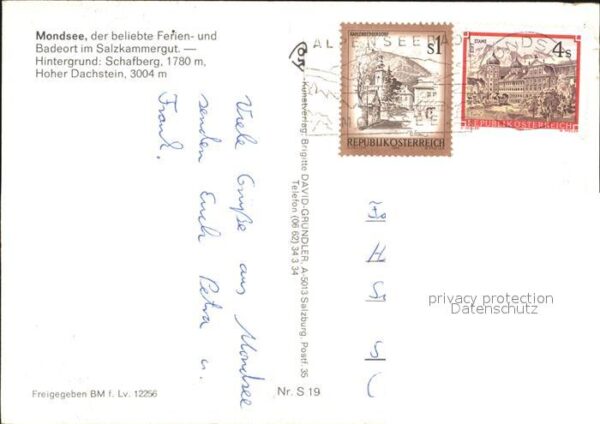 Mondsee, der beliebte Ferien- und
Badeort im Salzkammergut. —
Hintergrund: Schafberg, 1780 m,
Hoher Dachstein, 3004 m
Viele Grüße aus Mondsee
senden Euch Petra u.
Frank.
Kunstverlag: Brigitte DAVID-GRÜNDLER, A-5013 Salzburg, Postf. 35
Telefon (06 62) 34 3 34
S1
REPUBLIK ÖSTERREICH
STIFT STAMS
4 S
REPUBLIK ÖSTERREICH
ALPENSEEBAD MONDSEE
privacy protection
Datenschutz
Freigegeben BM f. Lv. 12256
Nr. S 19